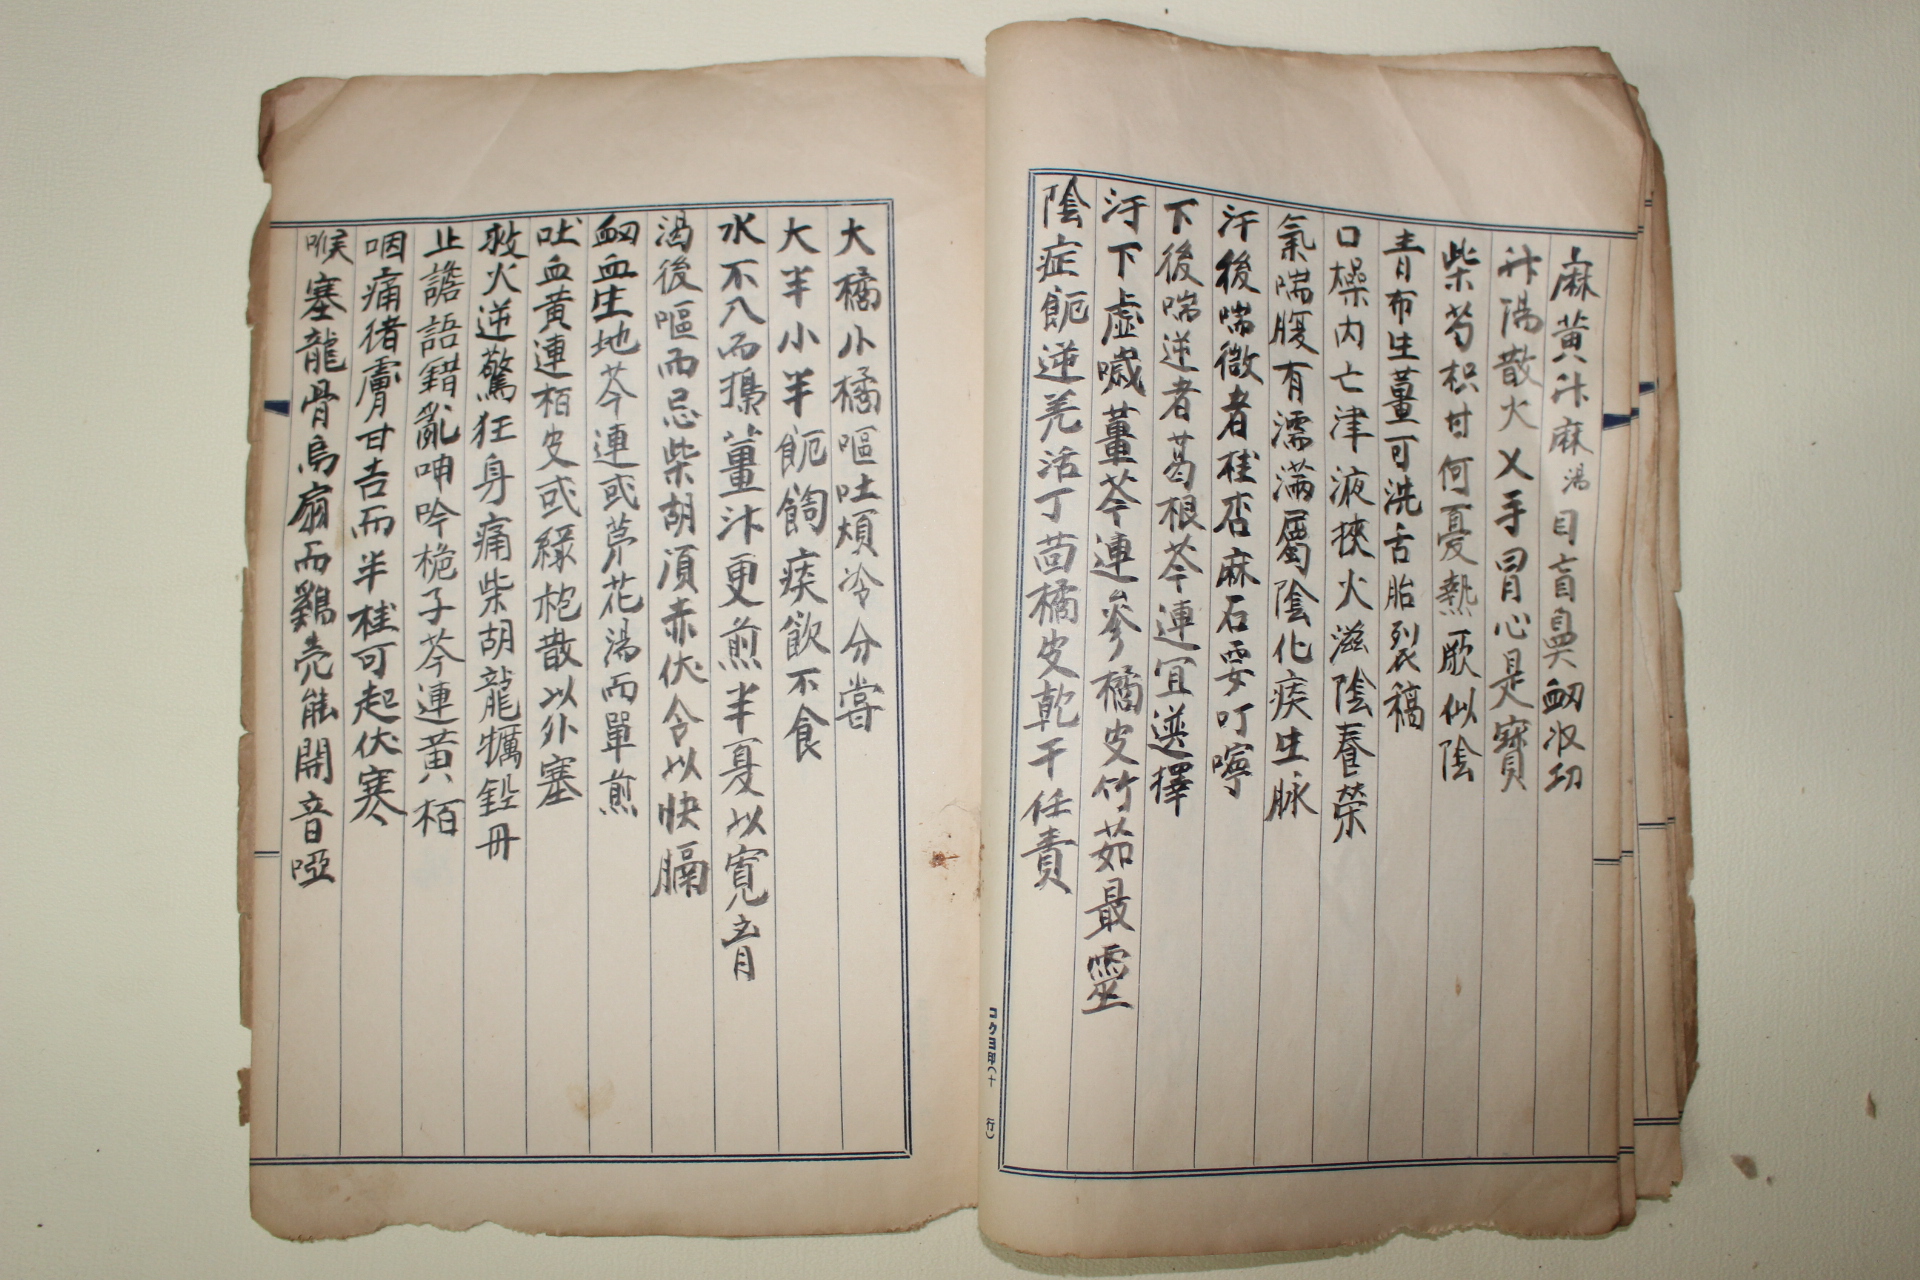 麻黄汁麻湯目盲鼻衂収功
汗陽散火乂手冒心是寶
柴芍枳甘何憂熱厥似陰
青布生薑可洗舌胎裂稿
口橾內亡津液挾火滋陰養荣
氣喘腹有濡滿屬陰化痰生脉
汗後喘微者桂杏麻石要叮嚀
下後喘逆者葛根芩連宜選擇
汗下虛噦薑芩連參橘皮竹茹最靈
陰症飢逆羌活丁茴橘皮乾干任責
コクヨ印(十行)
大橘小橘嘔吐煩冷分嘗
大半小半飢飼痰飲不食
水不入而搗薑汁更煎半夏以寬育
渴後嘔而忌柴胡湏赤伏令以快膈
衂血生地芩連或茅花湯而單煎
吐血黄連栢皮或綠枹散以外塞
救火逆驚狂身痛柴胡龍犡鉛丹
止譫語錯亂呻吟梔子芩連黄栢
咽痛猪膚甘吉而半桂可起伏寒
喉塞龍骨烏扇而鷄壳能開音啞